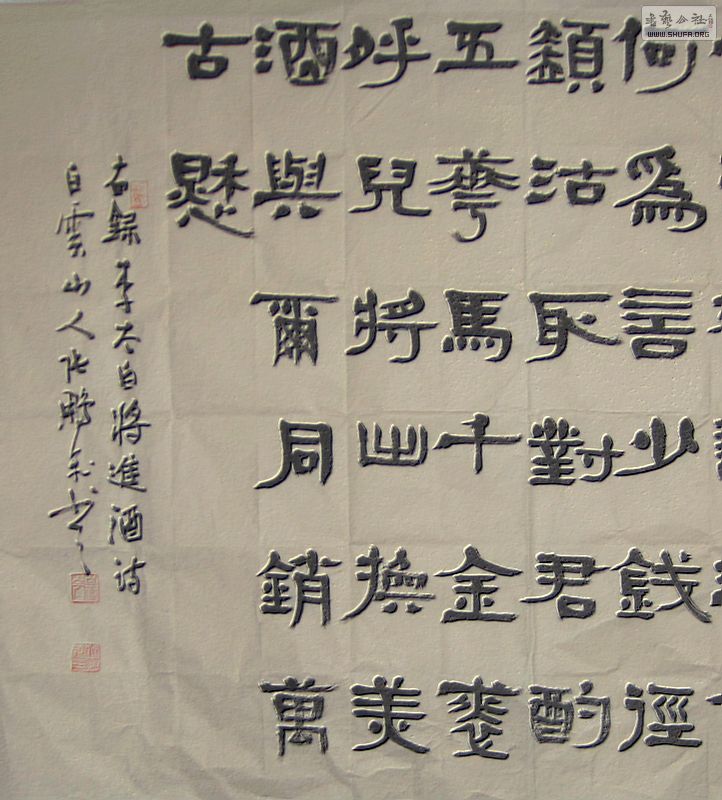 何為言少錢徑
須沽取對君酌
五華馬千金裘
呼兒將出換美
酒與爾同銷萬
古愁
右録李太白將進酒詩
白雲山人張鵬書
書藝公社
WWW.SHUFA.ORG